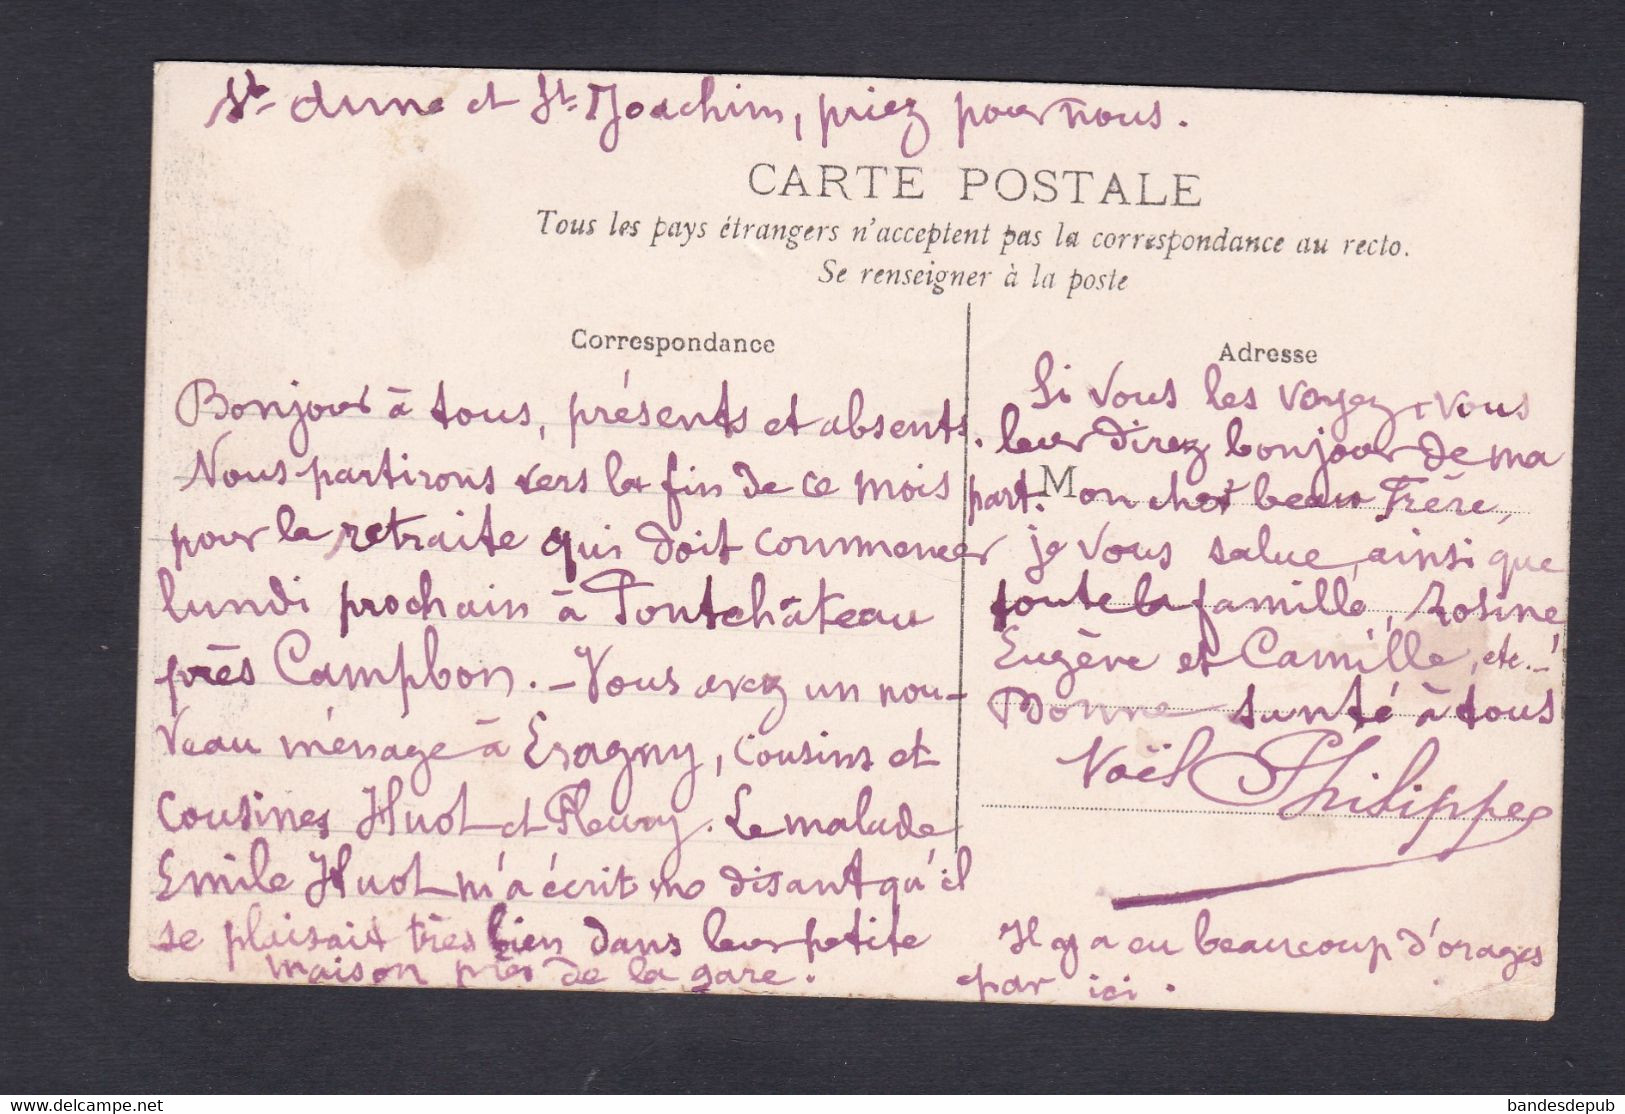 Ste Anne et St. Joachim, priez pour nous.
CARTE POSTALE
Tous les pays étrangers n'acceptent pas la correspondance au recto.
Se renseigner à la poste
Correspondance
Bonjour à tous, présents et absents.
Nous partirons vers la fin de ce mois
pour la retraite qui doit commencer
lundi prochain à Pontchâteau
près Campbon. - Vous avez un nou-
veau ménage à Eragny, cousins et
cousines Huot et Fleury. Le malade
Emile Huot m'a écrit me disant qu'il
se plaisait très bien dans leur petite
maison près de la gare.
Adresse
Si vous les voyez, vous
leur direz bonjour de ma
part. Mon cher beau Frère,
je vous salue, ainsi que
toute la famille, Rosine
Eugène et Camille, etc. -
Bonne santé à tous
Noël Philippe
Il y a eu beaucoup d'orages
par ici.
https://www.delcampe.net
bandesdepub